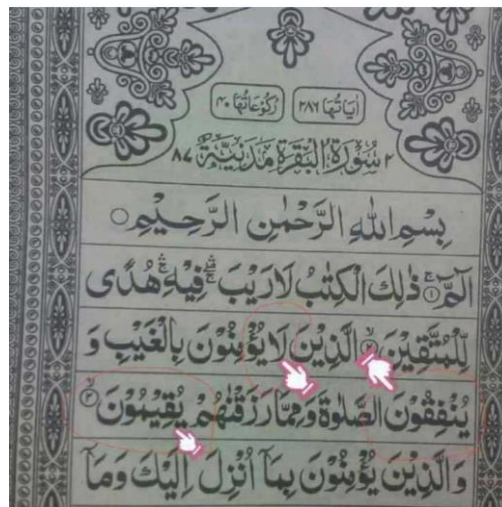 اٰيَاتُهَا ٢٨٦ رُكُوْعَاتُهَا ٤٠
٢ سُوْرَةُ الْبَقَرَةِ مَدَنِيَّةٌ ٨٧
بِسْمِ اللهِ الرَّحْمٰنِ الرَّحِيْمِ ○
الٓمّٓ ۚ ١ ذٰلِكَ الْكِتٰبُ لَا رَيْبَ ۛۚ فِيْهِ ۛۚ هُدًى
لِّلْمُتَّقِيْنَ ۙ ٢ الَّذِيْنَ لَا يُؤْمِنُوْنَ بِالْغَيْبِ وَ
يُنْفِقُوْنَ الصَّلٰوةَ وَمِمَّا رَزَقْنٰهُمْ يُقِيْمُوْنَ ۙ ٣
وَالَّذِيْنَ يُؤْمِنُوْنَ بِمَآ اُنْزِلَ اِلَيْكَ وَمَآ